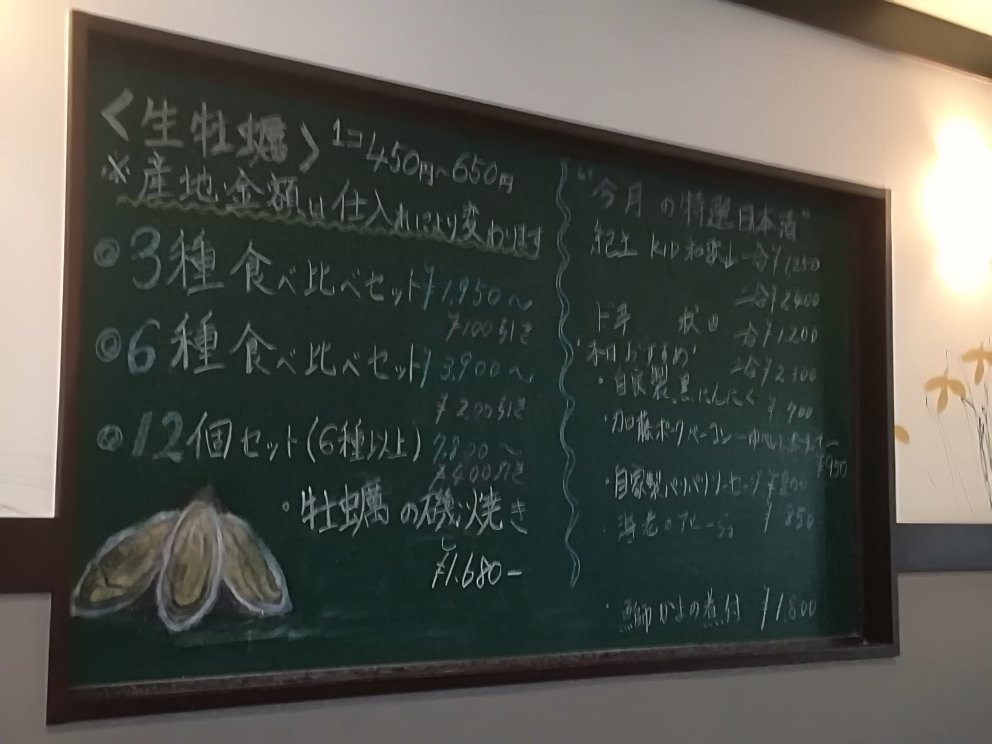 〈生牡蠣〉1コ450円～650円
※産地、金額は仕入れにより変わります
◎3種食べ比べセット¥1,950～
¥100引き
◎6種食べ比べセット¥3,900～
¥200引き
◎12個セット(6種以上) 7,800～
¥400引き
・牡蠣の磯焼き
¥1,680-
"今月の特選日本酒"
紀土 KID 和歌山 一合¥1250
二合¥2400
一合¥1200
'本日おすすめ' 二合¥2300
・自家製黒にんにく ¥900
ポークベーコン
¥950
・自家製パリパリソーセージ
海老のアヒージョ ¥850
・鰤かまの煮付 ¥1,800